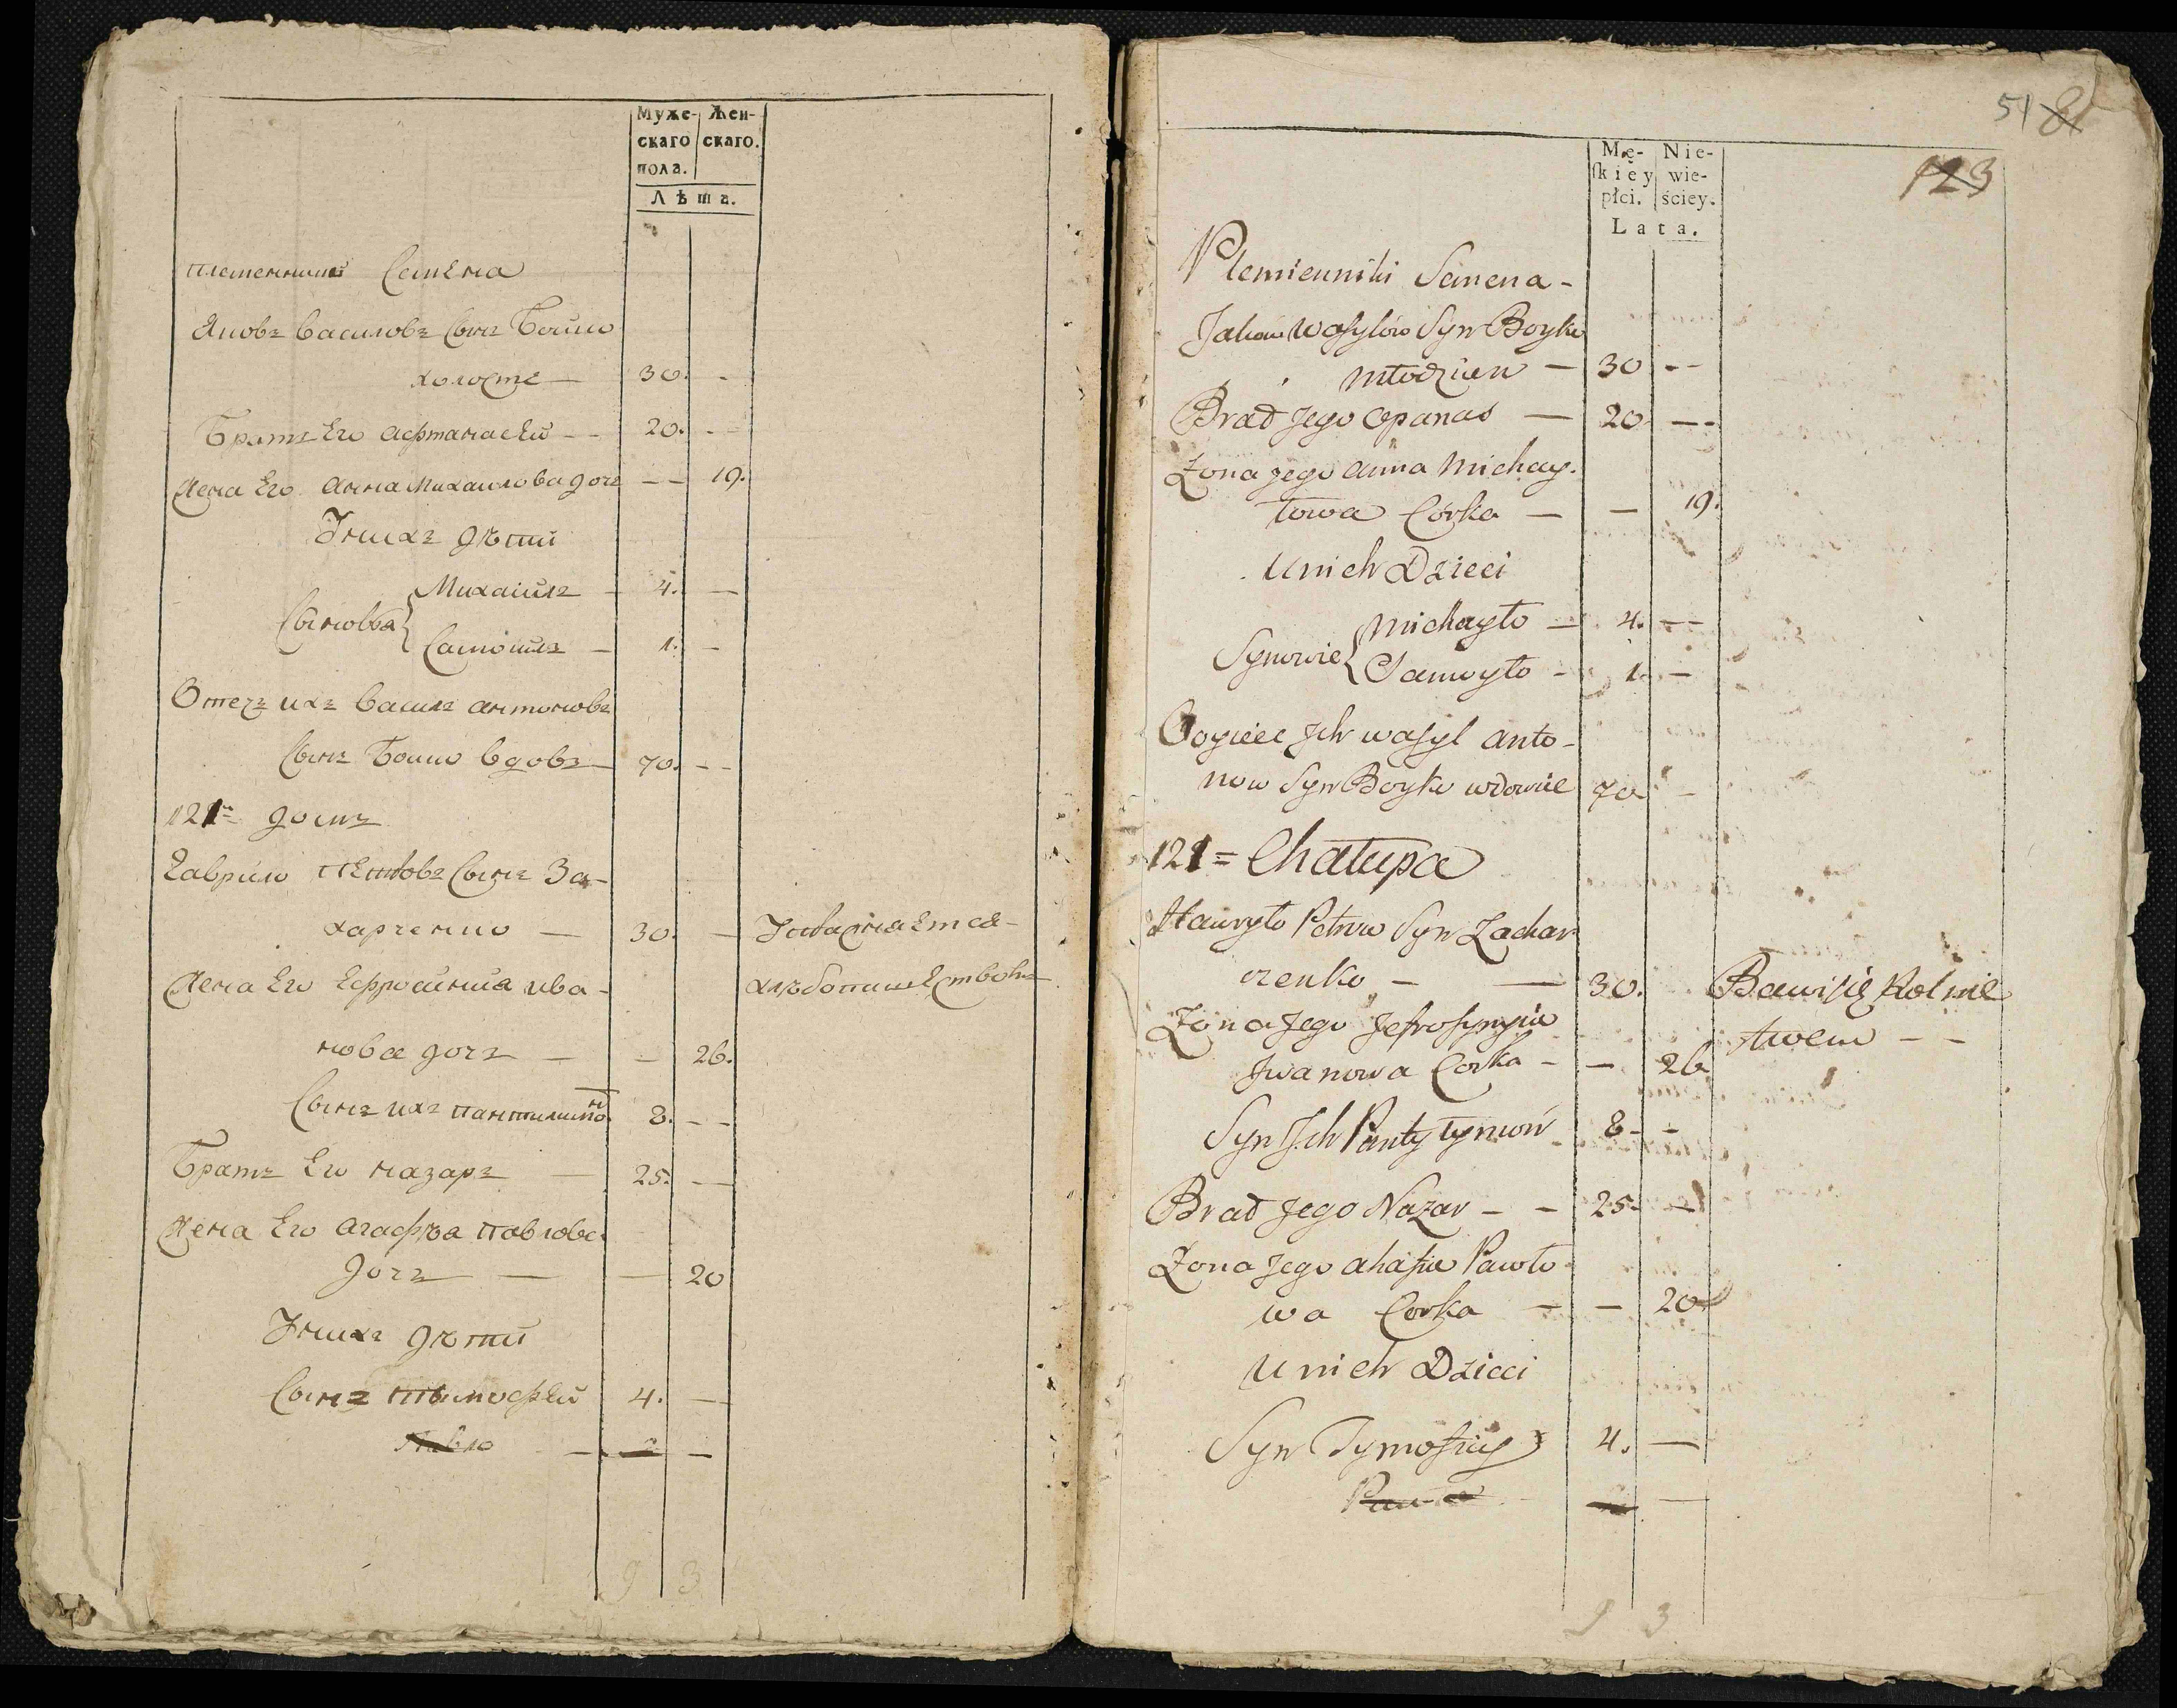 Муже- Жен-
скаго скаго.
пола.
Лѣта.
племенники Семена
Яковъ Василовъ Сынъ Бойко
холостъ — 30. -
Братъ Его Афтанасей - - 20. - -
Жена Его Анна Михаилова дочь - - 19.
У нихъ дѣти
Михаилъ - 4. —
Сыновья {
Самоилъ - 1. -
Отецъ ихъ Василъ Антоновъ
Сынъ Бойко вдовъ - 70. - -
121= домъ
Гаврило Петровъ Сынъ За-
харченко — 30. — Упражняется
Жена Его Ефросиния Ива- хлѣбопашествомъ
нова дочь — - 26.
Сынъ ихъ Пантилимонъ 8. - -
Братъ Его Назаръ — 25. - -
Жена Его Агафѣа Павлова
дочь — — 20
У нихъ дѣти
Сынъ Тимофей 4. —
Павло — 2 —
9 3
51 81
123
Mę- Nie-
skiey wie-
płci. ściey.
Lata.
Plemienniki Semena -
Jakow Wasylów Syn Boyko
młodzien — 30 - -
Brad Jego Opanas — 20. - -
Żona jego Anna Michay-
łowa Córka — — 19.
U nich Dzieci
Michayło — 4. - -
Synowie {
Samoyło - 1. —
Oyciec Jch Wasyl Anto-
now Syn Boyko wdowiec 70 -
121= Chałupa
Hawryło Petrow Syn Zachar
czenko - — 30. Bawi się Rolnic
Żona Jego Jefrosynyia twem - -
Jwanowa Corka - — 26
Syn Jch Pantyłymon 8 - -
Brad Jego Nazar - - 25. —
Żona Jego Ahafia Pawło
wa Corka - — 20
U nich Dzieci
Syn Tymofiey 4. —
9 3